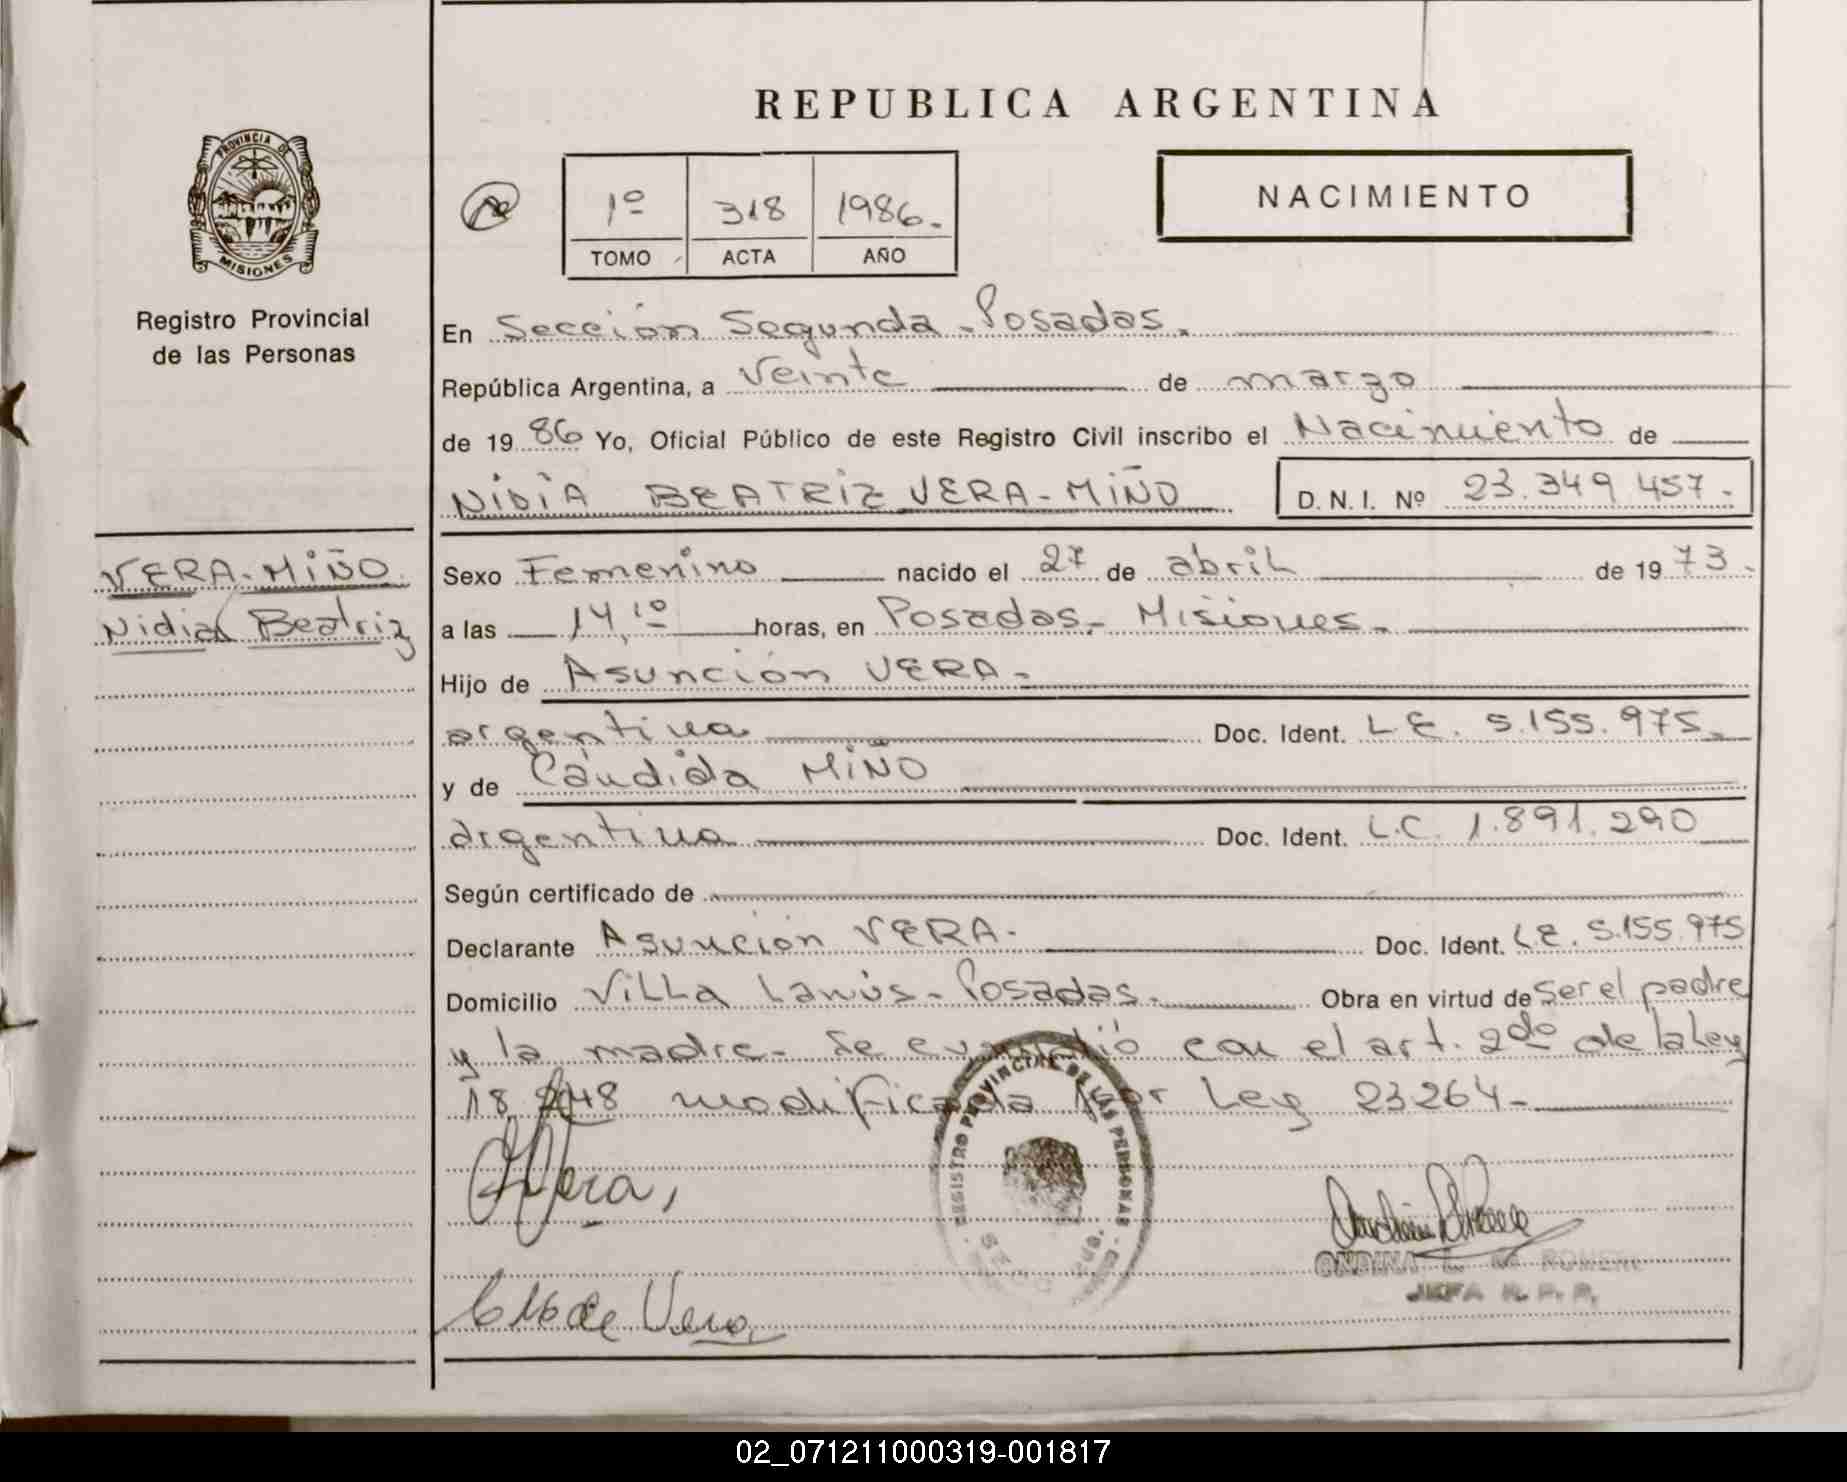 REPUBLICA ARGENTINA
PROVINCIA DE
MISIONES
Registro Provincial
de las Personas
1º 318 1986.
TOMO ACTA AÑO
NACIMIENTO
En Sección Segunda - Posadas.
República Argentina, a Veinte de marzo
de 19 86 Yo, Oficial Público de este Registro Civil inscribo el Nacimiento de
NIDIA BEATRIZ VERA-MIÑO D. N. I. Nº 23.349.457.
VERA-MIÑO
Nidia Beatriz
Sexo Femenino nacido el 27 de abril de 19 73.
a las 14,10 horas, en Posadas - Misiones.
Hijo de Asunción VERA -
argentina Doc. Ident. L.E. 5.155.975.
y de Cándida MIÑO
argentina Doc. Ident. L.C. 1.891.290
Según certificado de
Declarante Asunción VERA. Doc. Ident. L.E. 5.155.975
Domicilio Villa Lanús - Posadas. Obra en virtud de ser el padre
y la madre - Se cumplió con el art. 2do de la Ley
18.248 modificada por Ley 23264-
REGISTRO PROVINCIAL DE LAS PERSONAS
Vera,
de Vera
ONDINA
JEFA R. P. P.
02_071211000319-001817